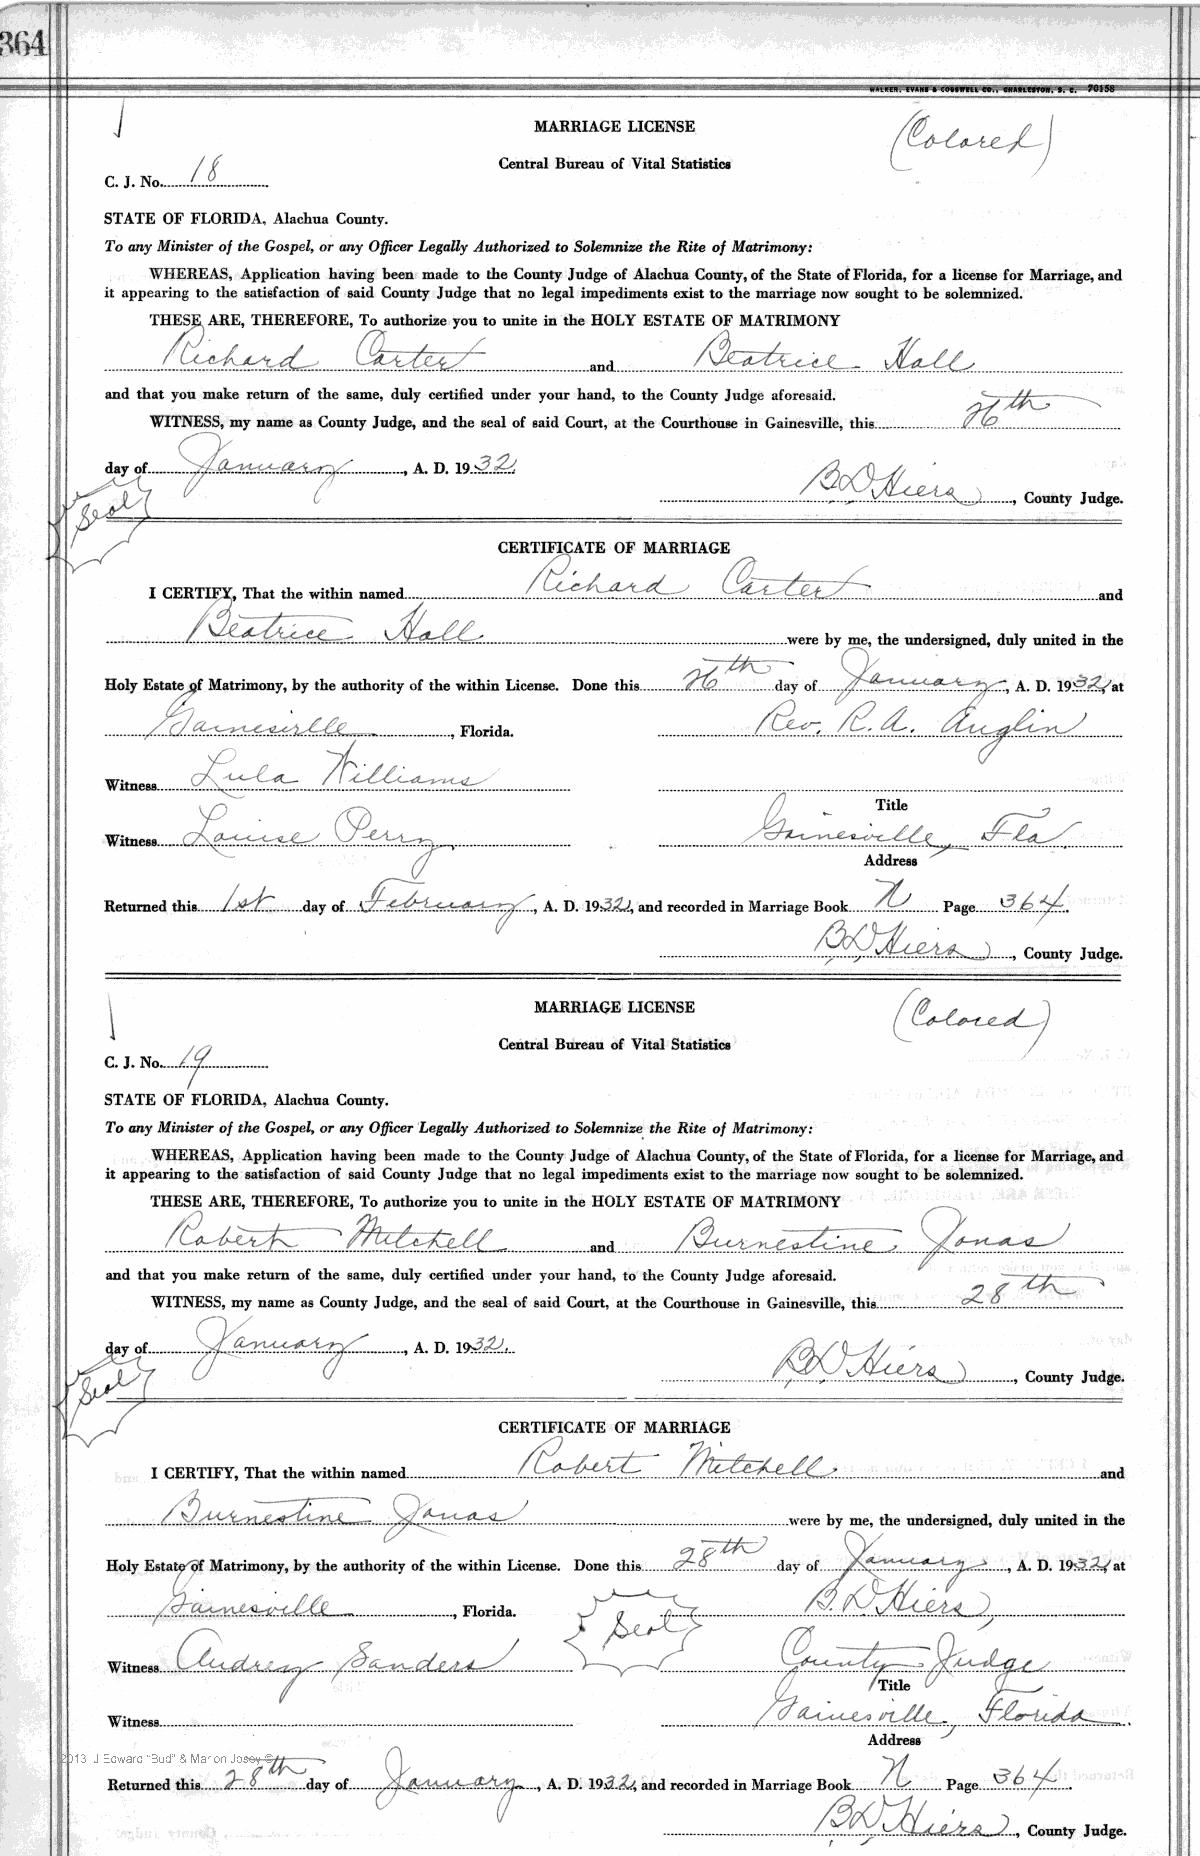 364
WALKER, EVANS & COGSWELL CO., CHARLESTON, S. C. 70158
MARRIAGE LICENSE
(Colored)
Central Bureau of Vital Statistics
C. J. No. 18
STATE OF FLORIDA, Alachua County.
To any Minister of the Gospel, or any Officer Legally Authorized to Solemnize the Rite of Matrimony:
WHEREAS, Application having been made to the County Judge of Alachua County, of the State of Florida, for a license for Marriage, and
it appearing to the satisfaction of said County Judge that no legal impediments exist to the marriage now sought to be solemnized.
THESE ARE, THEREFORE, To authorize you to unite in the HOLY ESTATE OF MATRIMONY
Richard Carter and Beatrice Hall
and that you make return of the same, duly certified under your hand, to the County Judge aforesaid.
WITNESS, my name as County Judge, and the seal of said Court, at the Courthouse in Gainesville, this 26th
day of January, A. D. 1932.
Seal
B.D. Hiers, County Judge.
CERTIFICATE OF MARRIAGE
I CERTIFY, That the within named Richard Carter and
Beatrice Hall were by me, the undersigned, duly united in the
Holy Estate of Matrimony, by the authority of the within License. Done this 26th day of January, A. D. 1932, at
Gainesville, Florida. Rev. R. A. Anglin
Witness Lula Williams
Title
Witness Louise Perry Gainesville, Fla.
Address
Returned this 1st day of February, A. D. 1932, and recorded in Marriage Book N Page 364.
B.D. Hiers, County Judge.
MARRIAGE LICENSE
(Colored)
Central Bureau of Vital Statistics
C. J. No. 19
STATE OF FLORIDA, Alachua County.
To any Minister of the Gospel, or any Officer Legally Authorized to Solemnize the Rite of Matrimony:
WHEREAS, Application having been made to the County Judge of Alachua County, of the State of Florida, for a license for Marriage, and
it appearing to the satisfaction of said County Judge that no legal impediments exist to the marriage now sought to be solemnized.
THESE ARE, THEREFORE, To authorize you to unite in the HOLY ESTATE OF MATRIMONY
Robert Mitchell and Burnestine Jonas
and that you make return of the same, duly certified under your hand, to the County Judge aforesaid.
WITNESS, my name as County Judge, and the seal of said Court, at the Courthouse in Gainesville, this 28th
day of January, A. D. 1932.
Seal
B.D. Hiers, County Judge.
CERTIFICATE OF MARRIAGE
I CERTIFY, That the within named Robert Mitchell and
Burnestine Jonas were by me, the undersigned, duly united in the
Holy Estate of Matrimony, by the authority of the within License. Done this 28th day of January, A. D. 1932, at
Gainesville, Florida. Seal B.D. Hiers,
Witness Audrey Sanders County Judge
Title
Witness Gainesville, Florida.
Address
2013 J Edward "Bud" & Marion Josey ©
Returned this 28th day of January, A. D. 1932, and recorded in Marriage Book N Page 364.
B.D. Hiers, County Judge.